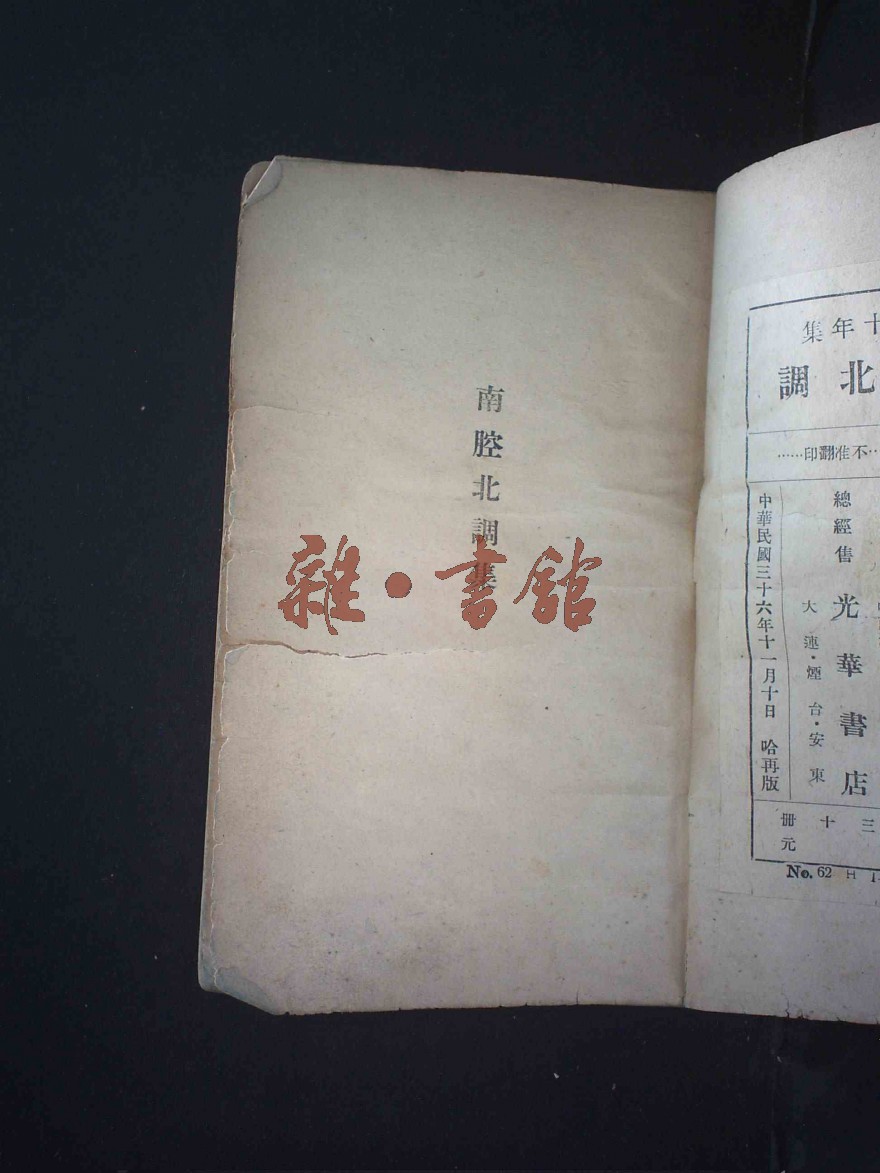 南腔北調集
雜·書館
十年集
北調
……不准翻印……
總經售 光華書店
大連·煙台·安東
中華民國三十六年十一月十日 哈再版
三十
冊元
No. 62 H